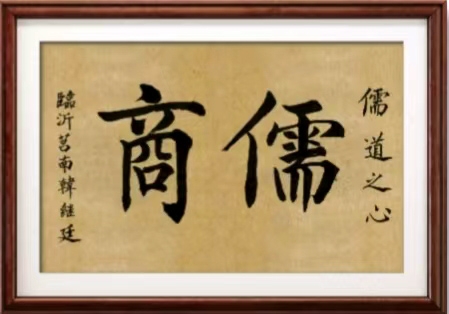 儒道之心
儒商
臨沂莒南韓繼廷